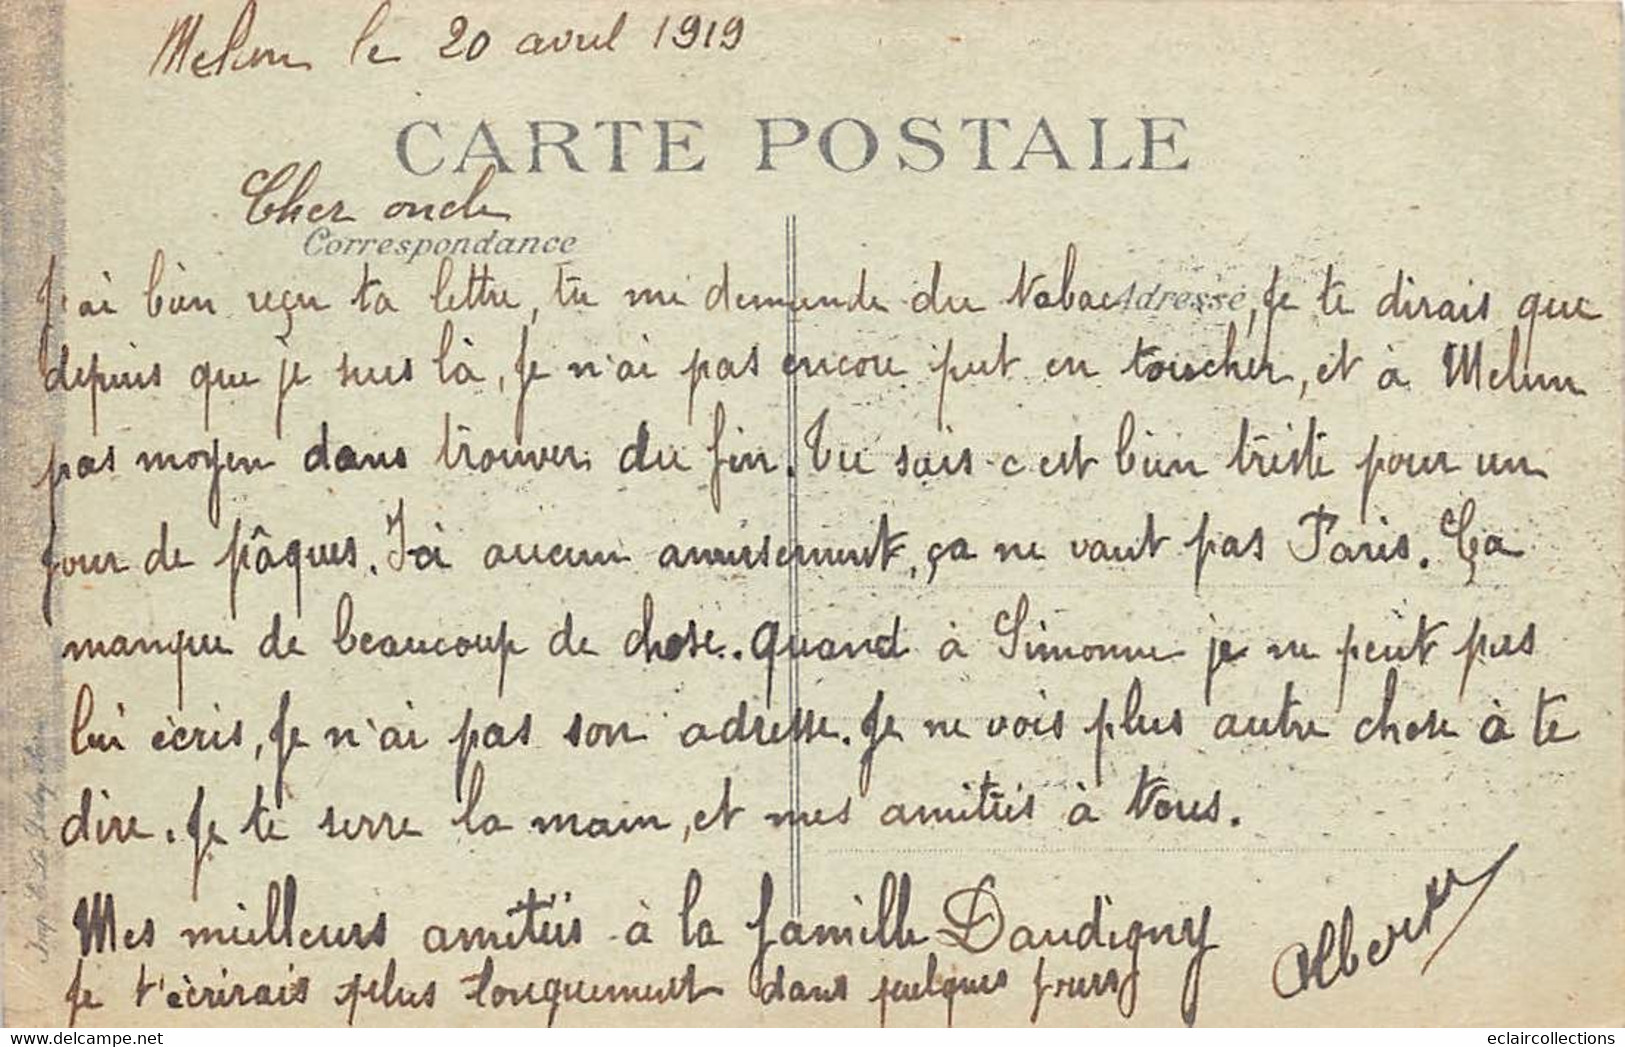 Melun le 20 avril 1919
CARTE POSTALE
Cher oncle
Correspondance
J'ai bien reçu ta lettre, tu me demande du tabac, Je te dirais que
Adresse
depuis que je suis là, Je n'ai pas encore put en toucher, et à Melun
pas moyen dans trouver du fin. Tu sais c'est bien triste pour un
jour de pâques. Ici aucun amusement, ça ne vaut pas Paris. Ça
manque de beaucoup de chose. Quand à Simonne je ne peut pas
lui écris, Je n'ai pas son adresse. Je ne vois plus autre chose à te
dire. Je te serre la main, et mes amitiés à Vous.
Mes meilleurs amitiés à la famille Daudigny
Albert
Je t'écrirais plus longuement dans quelques jours
Imp.
eclaircollections
www.delcampe.net